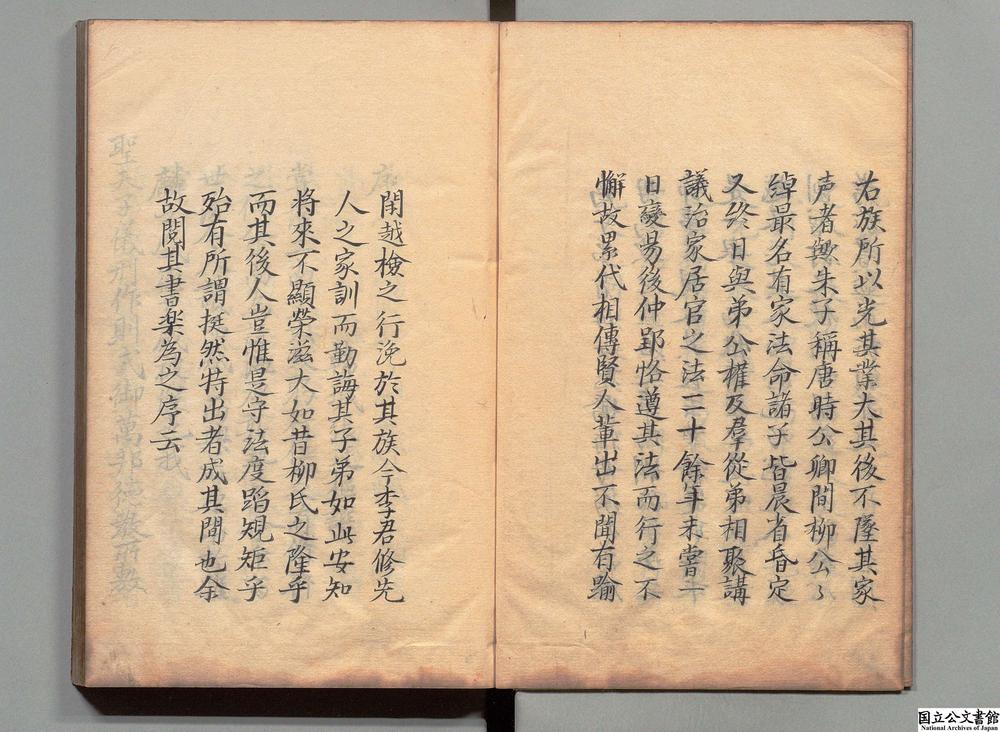 右族所以光其業大其後不墜其家
声者與朱子稱唐時公卿間柳公〻
綽最名有家法命諸子皆晨省昏定
又終日與弟公權及羣從弟相聚講
議治家居官之法二十餘年未嘗一
日變易後仲郢恪遵其法而行之不
懈故累代相傳賢人輩出不聞有踰
閑越檢之行浼於其族今李君修先
人之家訓而勤誨其子弟如此安知
將來不顯榮滋大如昔柳氏之隆乎
而其後人豈惟是守法度蹈規矩乎
殆有所謂挺然特出者成其間也余
故閱其書楽為之序云
国立公文書館
National Archives of Japan